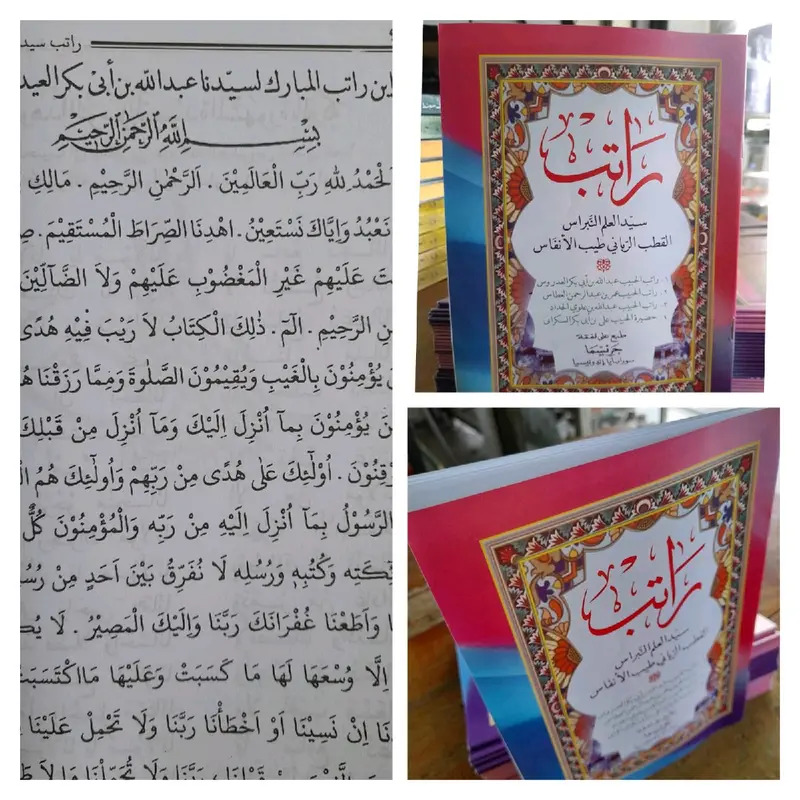 راتب سيد
ابن راتب المبارك لسيدنا عبد الله بن أبي بكر العيد
بِسْمِ اللهِ الرَّحْمٰنِ الرَّحِيْمِ
لْحَمْدُ لِلهِ رَبِّ الْعَالَمِيْنَ . اَلرَّحْمٰنِ الرَّحِيْمِ . مَالِكِ
نَعْبُدُ وَاِيَّاكَ نَسْتَعِيْنُ . اهْدِنَا الصِّرَاطَ الْمُسْتَقِيْمَ . صِ
تَ عَلَيْهِمْ غَيْرِ الْمَغْضُوْبِ عَلَيْهِمْ وَلَا الضَّآلِّيْنَ
نِ الرَّحِيْمِ . الٓمّ . ذٰلِكَ الْكِتَابُ لَا رَيْبَ فِيْهِ هُدًى
يُؤْمِنُوْنَ بِالْغَيْبِ وَيُقِيْمُوْنَ الصَّلٰوةَ وَمِمَّا رَزَقْنَا هُ
نَ يُؤْمِنُوْنَ بِمَآ اُنْزِلَ اِلَيْكَ وَمَآ اُنْزِلَ مِنْ قَبْلِكَ
قِنُوْنَ . اُوْلٰٓئِكَ عَلٰى هُدًى مِنْ رَبِّهِمْ وَاُولٰٓئِكَ هُمُ الْ
الرَّسُوْلُ بِمَآ اُنْزِلَ اِلَيْهِ مِنْ رَبِّهِ وَالْمُؤْمِنُوْنَ كُلٌّ
ئِكَتِهِ وَكُتُبِهِ وَرُسُلِهِ لَا نُفَرِّقُ بَيْنَ اَحَدٍ مِنْ رُسُ
ا وَاَطَعْنَا غُفْرَانَكَ رَبَّنَا وَاِلَيْكَ الْمَصِيْرُ . لَا يُكَ
اِلَّا وُسْعَهَا لَهَا مَا كَسَبَتْ وَعَلَيْهَا مَااكْتَسَبَتْ
نَا اِنْ نَسِيْنَا اَوْ اَخْطَأْنَا رَبَّنَا وَلَا تَحْمِلْ عَلَيْنَا
قَبْلِنَا ، رَبَّنَا وَلَا تُحَمِّلْنَا مَا لَا طَ
راتب
سيد العلم النبراس
القطب الرباني طيب الأنفاس
١. راتب الحبيب عبد الله بن أبي بكر العدروسي
٢. راتب الحبيب عمر بن عبد الرحمن العطاس
٣. راتب الحبيب عبد الله بن علوي الحداد
٤. حضيرة الحبيب علي بن أبي بكر السكران
طبع على نفقة
سورابايا إندونيسيا
راتب
سيد العلم النبراس
القطب الرباني طيب الأنفاس